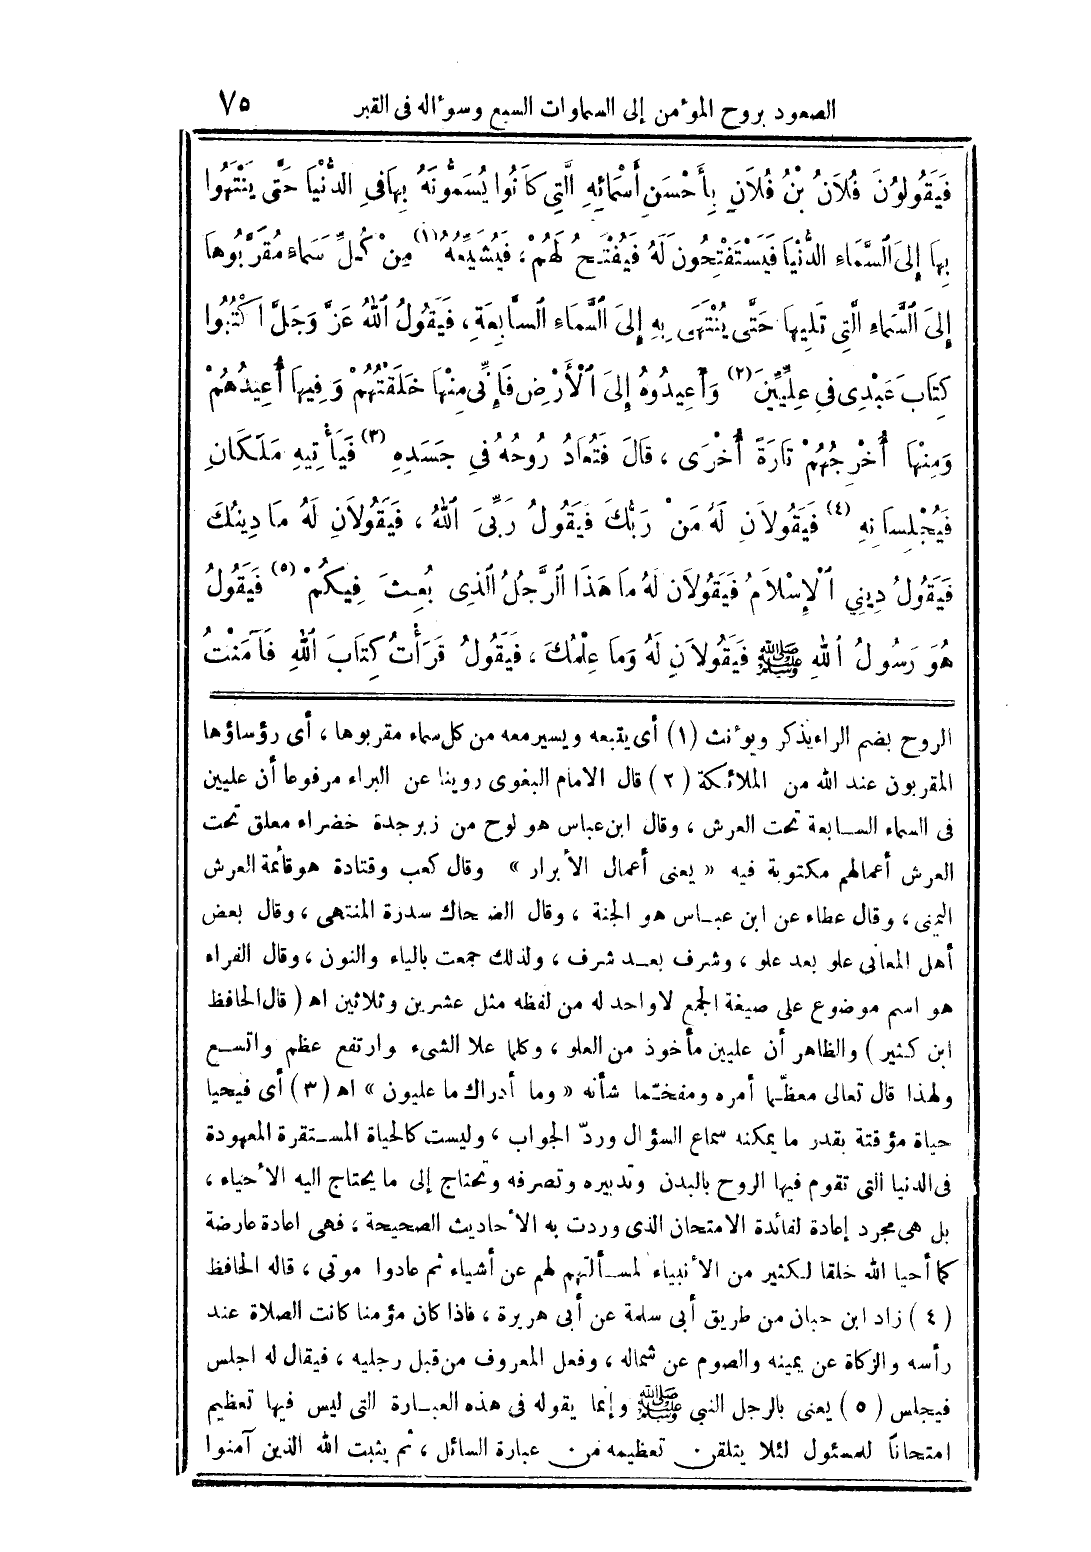 الصعود بروح المؤمن إلى السماوات السبع وسؤاله فى القبر ٧٥
فَيَقُولُونَ فُلَانُ بْنُ فُلَانٍ بِأَحْسَنِ أَسْمَائِهِ الَّتِي كَانُوا يُسَمُّونَهُ بِهَا فِي الدُّنْيَا حَتَّى يَنْتَهُوا
بِهَا إِلَى السَّمَاءِ الدُّنْيَا فَيَسْتَفْتِحُونَ لَهُ فَيُفْتَحُ لَهُمْ ، فَيُشَيِّعُهُ (١) مِنْ كُلِّ سَمَاءٍ مُقَرَّبُوهَا
إِلَى السَّمَاءِ الَّتِي تَلِيهَا حَتَّى يُنْتَهَى بِهِ إِلَى السَّمَاءِ السَّابِعَةِ ، فَيَقُولُ اللهُ عَزَّ وَجَلَّ اكْتُبُوا
كِتَابَ عَبْدِى فِي عِلِّيِّينَ (٢) وَأَعِيدُوهُ إِلَى الْأَرْضِ فَإِنِّى مِنْهَا خَلَقْتُهُمْ وَفِيهَا أُعِيدُهُمْ
وَمِنْهَا أُخْرِجُهُمْ تَارَةً أُخْرَى ، قَالَ فَتُعَادُ رُوحُهُ فِي جَسَدِهِ (٣) فَيَأْتِيهِ مَلَكَانِ
فَيُجْلِسَانِهِ (٤) فَيَقُولَانِ لَهُ مَنْ رَبُّكَ فَيَقُولُ رَبِّىَ اللهُ ، فَيَقُولَانِ لَهُ مَا دِينُكَ
فَيَقُولُ دِينِي الْإِسْلَامُ فَيَقُولَانِ لَهُ مَا هَذَا الرَّجُلُ الَّذِى بُعِثَ فِيكُمْ (٥) فَيَقُولُ
هُوَ رَسُولُ اللهِ ﷺ فَيَقُولَانِ لَهُ وَمَا عِلْمُكَ ، فَيَقُولُ قَرَأْتُ كِتَابَ اللهِ فَآمَنْتُ
الروح بضم الراء يذكر ويؤنث (١) أى يقبعه ويسير معه من كل سماء مقربوها ، أى رؤساؤها
المقربون عند الله من الملائكة (٢) قال الامام البغوى روينا عن البراء مرفوعا أن عليين
فى السماء السابعة تحت العرش ، وقال ابن عباس هو لوح من زبرجدة خضراء معلق تحت
العرش أعمالهم مكتوبة فيه « يعنى أعمال الأبرار » وقال كعب وقتادة هو قائمة العرش
اليمنى ، وقال عطاء عن ابن عباس هو الجنة ، وقال الضحاك سدرة المنتهى ، وقال بعض
أهل المعانى علو بعد علو ، وشرف بعد شرف ، ولذلك جمعت بالياء والنون ، وقال الفراء
هو اسم موضوع على صيغة الجمع لا واحد له من لفظه مثل عشرين وثلاثين اه ( قال الحافظ
ابن كثير ) والظاهر أن عليين مأخوذ من العلو ، وكلما علا الشىء وارتفع عظم واتسع
ولهذا قال تعالى معظّما أمره ومفخّما شأنه « وما أدراك ما عليون » اه (٣) أى فيحيا
حياة مؤقتة بقدر ما يمكنه سماع السؤال وردّ الجواب ، وليست كالحياة المستقرة المعهودة
فى الدنيا التى تقوم فيها الروح بالبدن وتدبيره وتصرفه وتحتاج إلى ما يحتاج اليه الأحياء ،
بل هى مجرد إعادة لفائدة الامتحان الذى وردت به الأحاديث الصحيحة ، فهى اعادة عارضة
كما أحيا الله خلقا لكثير من الأنبياء لمسألتهم لهم عن أشياء ثم عادوا موتى ، قاله الحافظ
(٤) زاد ابن حبان من طريق أبى سلمة عن أبى هريرة ، فاذا كان مؤمنا كانت الصلاة عند
رأسه والزكاة عن يمينه والصوم عن شماله ، وفعل المعروف من قبل رجليه ، فيقال له اجلس
فيجلس (٥) يعنى بالرجل النبي ﷺ وإنما يقوله فى هذه العبارة التى ليس فيها تعظيم
امتحانًا للمسئول لئلا يتلقن تعظيمه من عبارة السائل ، ثم يثبت الله الذين آمنوا